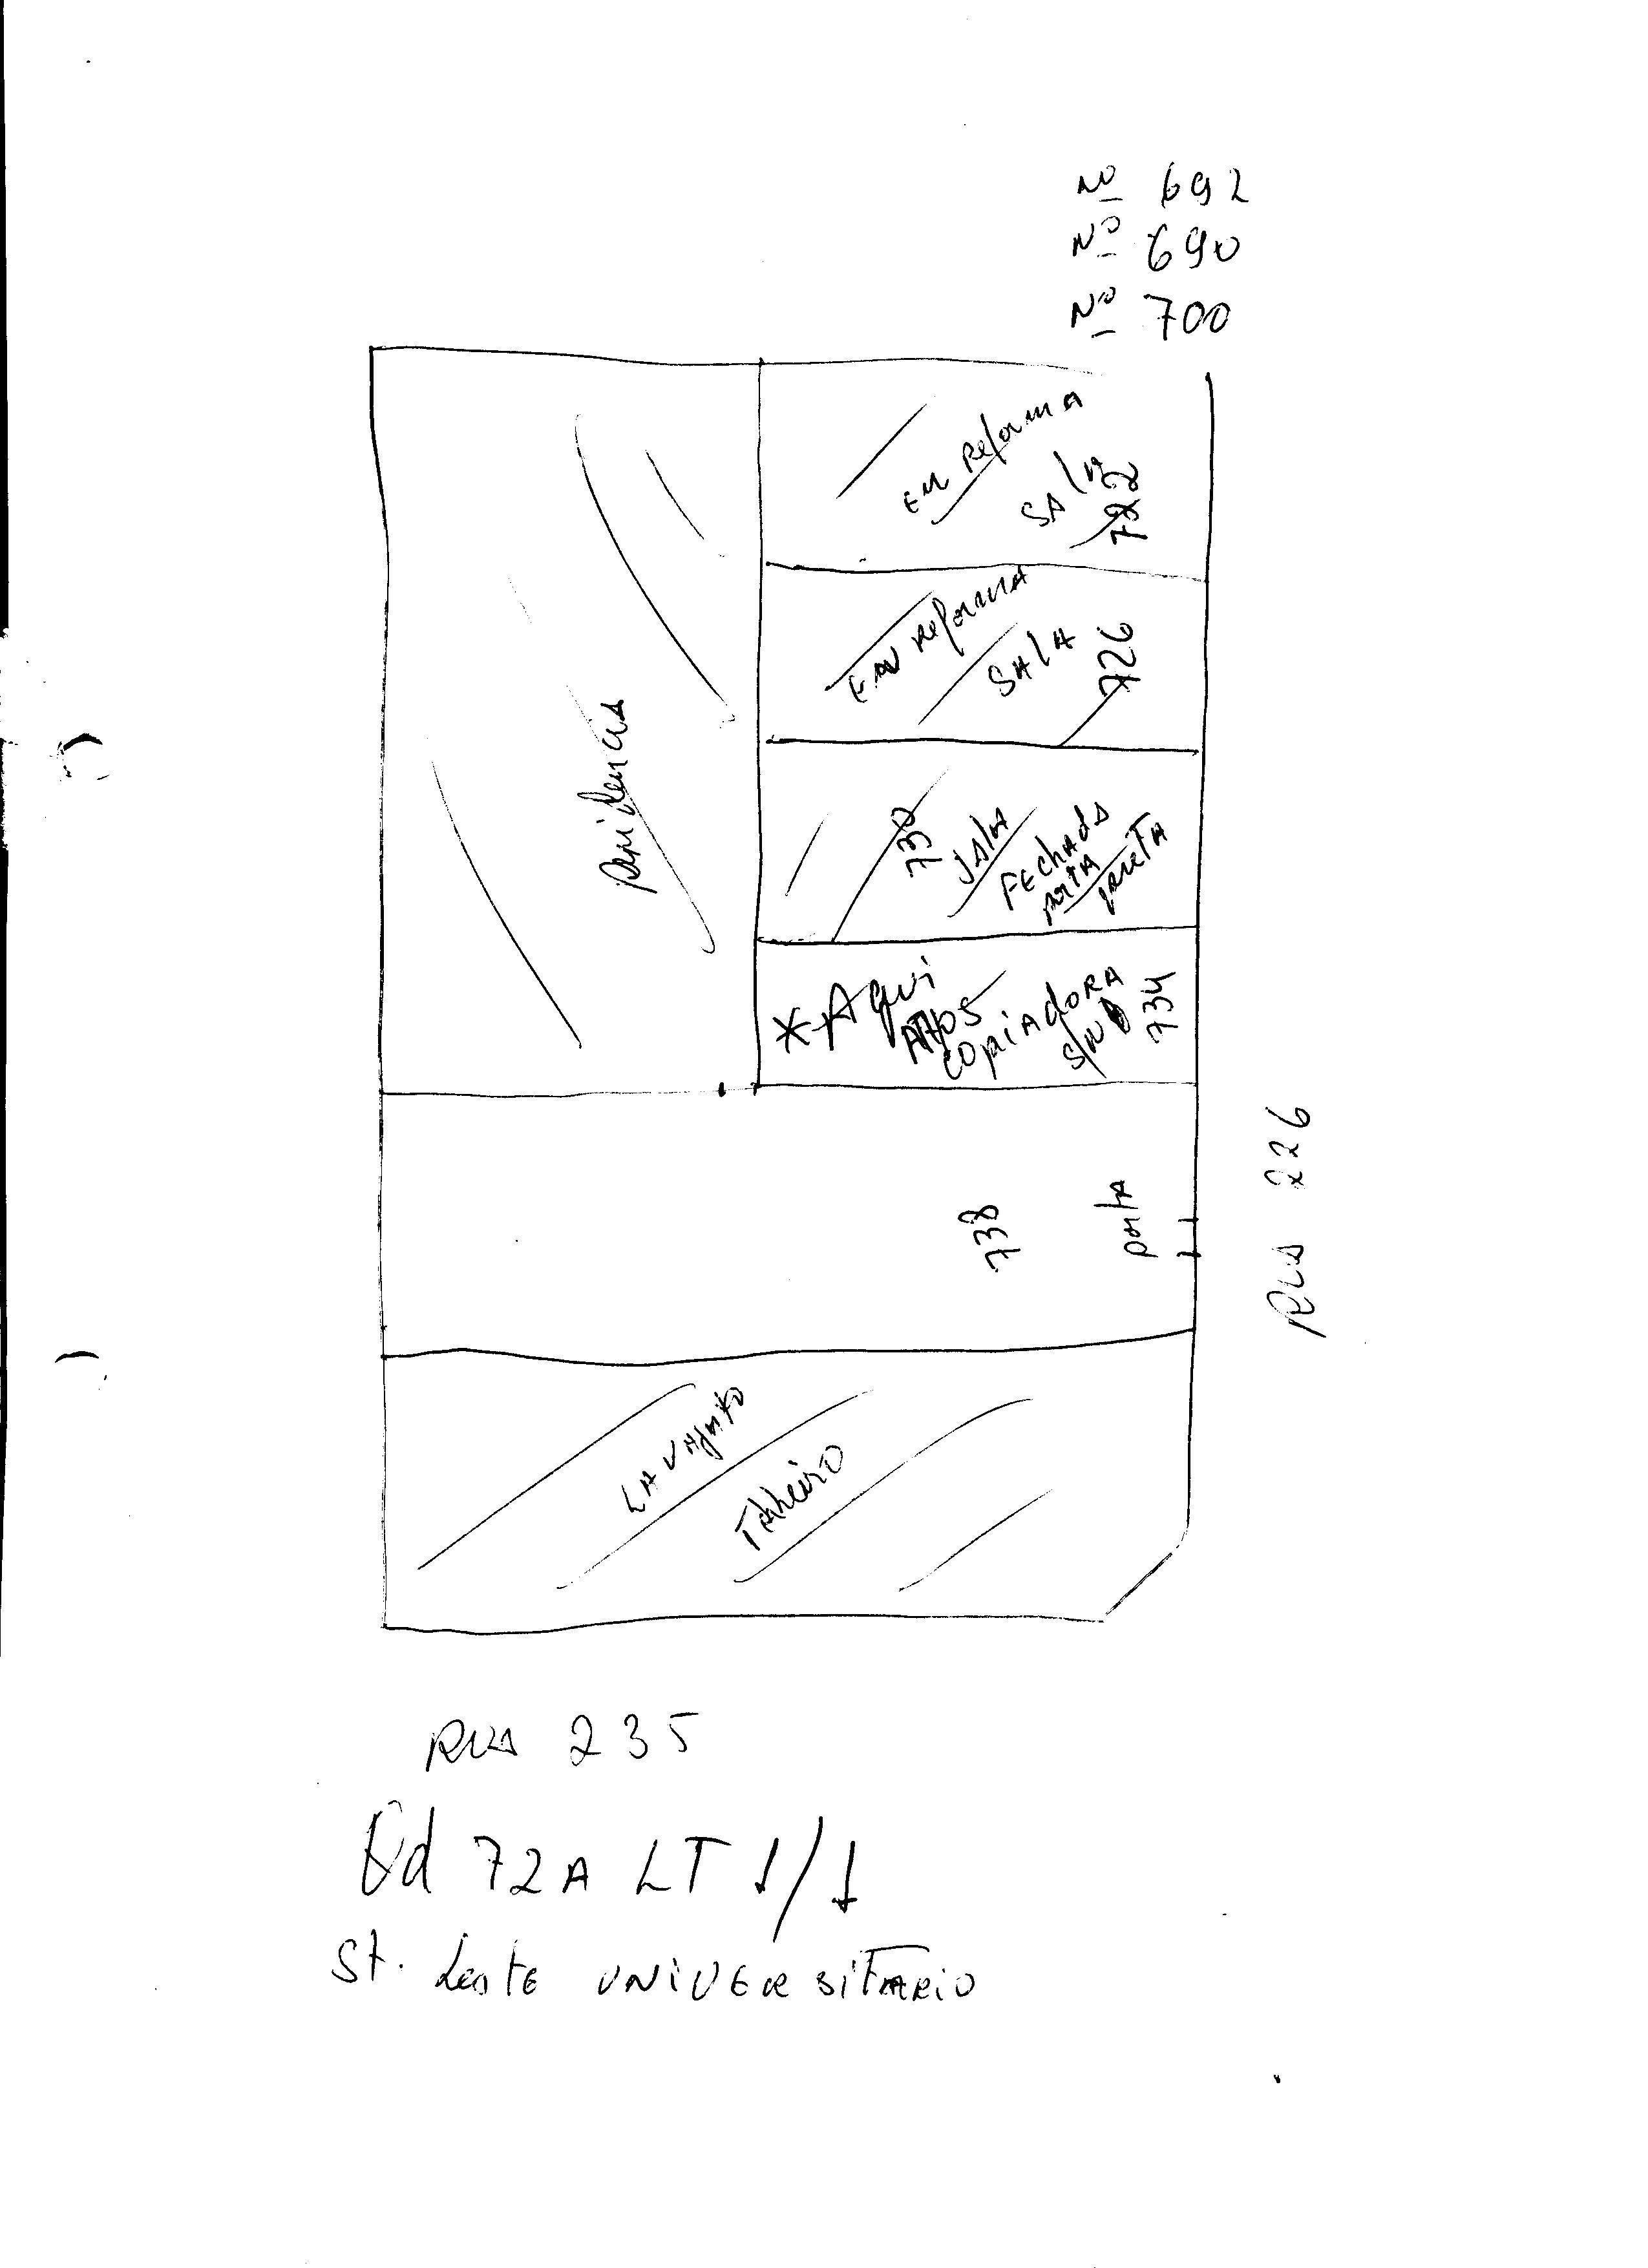 Nº 692
Nº 690
Nº 700
EM Reforma
SALA
722
EM Reforma
SALA
726
Residencia
730
FEchada
porta
preta
*Aqui
COPIADORA
734
738
porta
RUA 226
LAVAJATO
RUA 235
Qd 72A LT 1/1
St. Leste UNIVERSITARIO